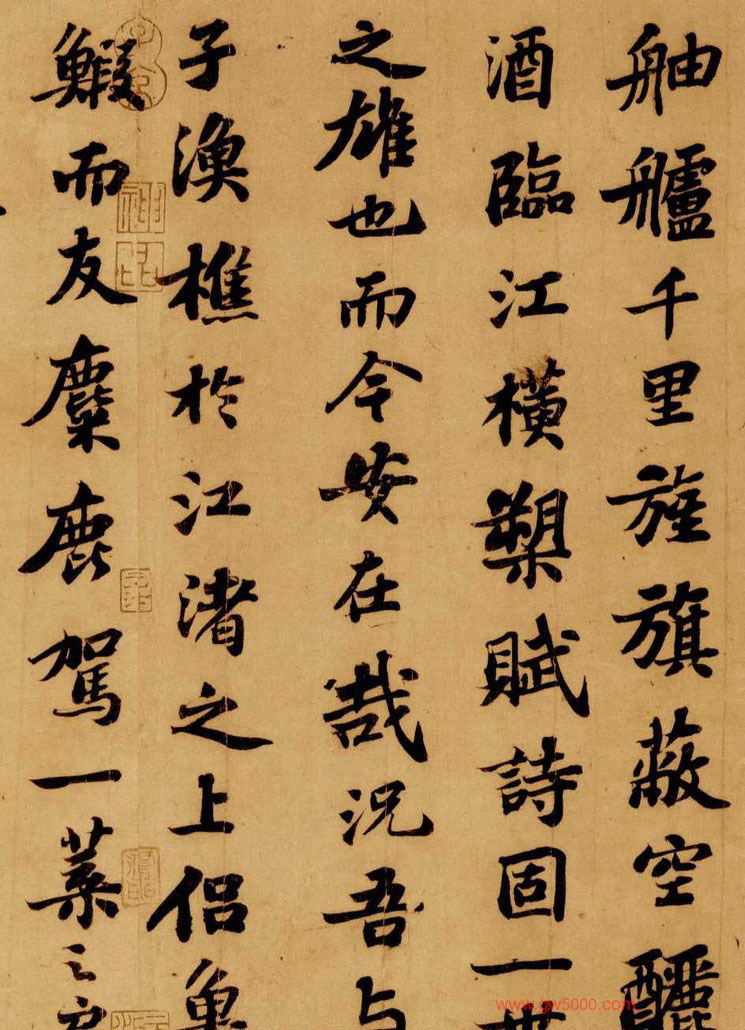 舳艫千里旌旗蔽空釃
酒臨江橫槊賦詩固一世
之雄也而今安在哉況吾与
子漁樵於江渚之上侶魚
鰕而友麋鹿駕一葉之
www.gw5000.com